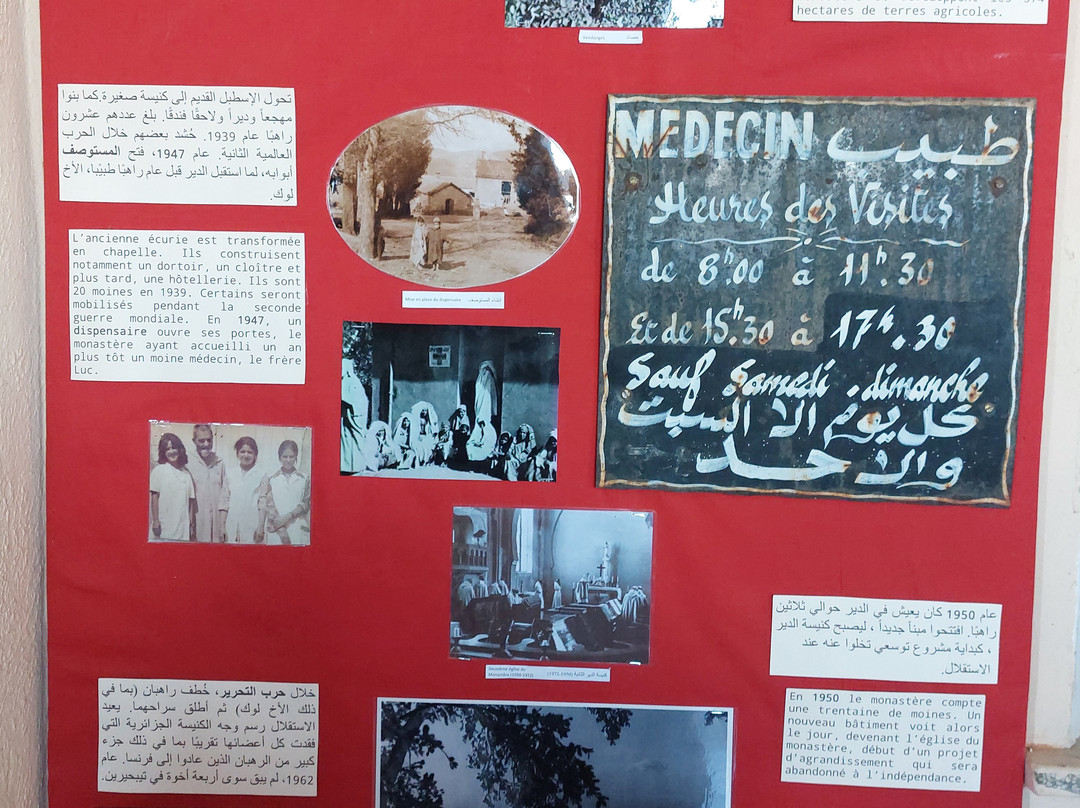 hectares de terres agricoles.
Vendanges
تحول الإسطبل القديم إلى كنيسة صغيرة.كما بنوا
مهجعاً وديراً ولاحقًا فندقًا. بلغ عددهم عشرون
راهبًا عام 1939. حُشد بعضهم خلال الحرب
العالمية الثانية. عام 1947، فتح المستوصف
أبوابه، لما استقبل الدير قبل عام راهبًا طبيبًا، الأخ
لوك.
L'ancienne écurie est transformée
en chapelle. Ils construisent
notamment un dortoir, un cloître et
plus tard, une hôtellerie. Ils sont
20 moines en 1939. Certains seront
mobilisés pendant la seconde
guerre mondiale. En 1947, un
dispensaire ouvre ses portes, le
monastère ayant accueilli un an
plus tôt un moine médecin, le frère
Luc.
Mise en place du dispensaire
إنشاء المستوصف
MEDECIN طبيب
Heures des Visites
de 8h.00 à 11h.30
Et de 15h.30 à 17h.30
Sauf Samedi . dimanche
كل يوم الا السبت
والاحد
Deuxième église du
Monastère
كنيسة الدير الثانية
عام 1950 كان يعيش في الدير حوالي ثلاثين
راهبًا. افتتحوا مبناً جديداً ، ليصبح كنيسة الدير
، كبداية مشروع توسعي تخلوا عنه عند
الاستقلال.
En 1950 le monastère compte
une trentaine de moines. Un
nouveau bâtiment voit alors
le jour, devenant l'église du
monastère, début d'un projet
d'agrandissement qui sera
abandonné à l'indépendance.
خلال حرب التحرير، خُطف راهبان (بما في
ذلك الأخ لوك) ثم أطلق سراحهما. يعيد
الاستقلال رسم وجه الكنيسة الجزائرية التي
فقدت كل أعضائها تقريبًا بما في ذلك جزء
كبير من الرهبان الذين عادوا إلى فرنسا. عام
1962، لم يبق سوى أربعة أخوة في تيبحيرين.